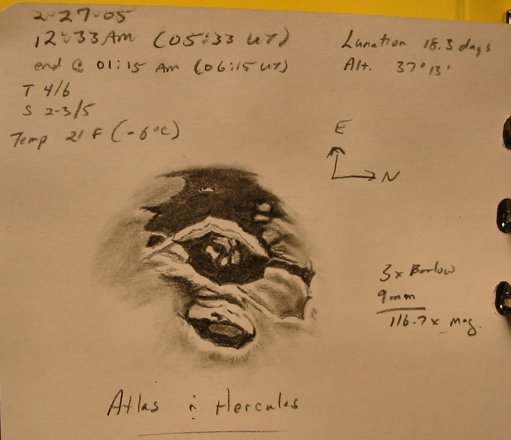 2-27-05
12:33 Am (05:33 UT)
end @ 01:15 Am (06:15 UT)
T 4/6
S 2-3/5
Temp 21 F (-6°C)
Lunation 18.3 days
Alt. 37° 13'
E
N
3x Barlow
9mm
116.7x Mag.
Atlas & Hercules